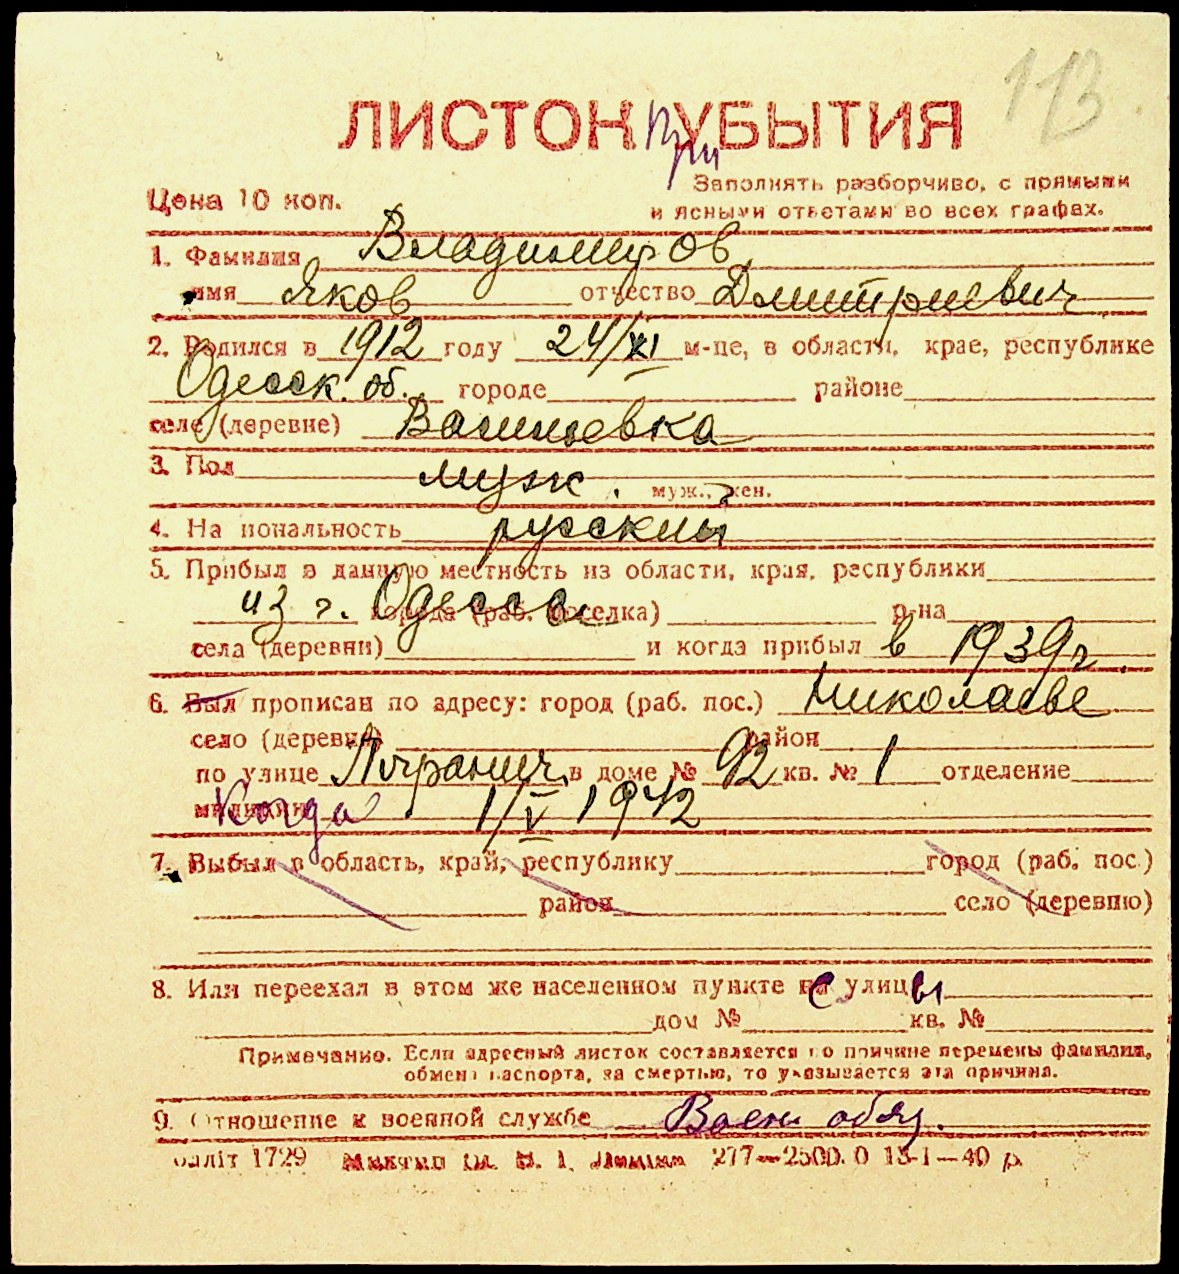 113
ЛИСТОК УБЫТИЯ
При
Цена 10 коп.
Заполнять разборчиво, с прямыми
и ясными ответами во всех графах.
1. Фамилия Владимиров
имя Яков отчество Дмитриевич
2. Родился в 1912 году 24/XI м-це, в области, крае, республике
Одесск. об. городе районе
селе (деревне) Васильевка
3. Пол муж.
муж., жен.
4. Национальность русский
5. Прибыл в данную местность из области, края, республики
из г. Одессы города (раб. поселка) р-на
села (деревни) и когда прибыл в 1939 г.
6. Был прописан по адресу: город (раб. пос.) Николаеве
село (деревня) район
по улице Погранич. в доме № 92 кв. № 1 отделение
милиции Когда 1/V 1942
7. Выбыл в область, край, республику город (раб. пос.)
район село (деревню)
8. Или переехал в этом же населенном пункте с улицы
дом № кв. №
Примечание. Если адресный листок составляется по причине перемены фамилии,
обмена паспорта, за смертью, то указывается эта причина.
9. Отношение к военной службе Воен обяз.
1729 277—2500.0 13-I—40 р.